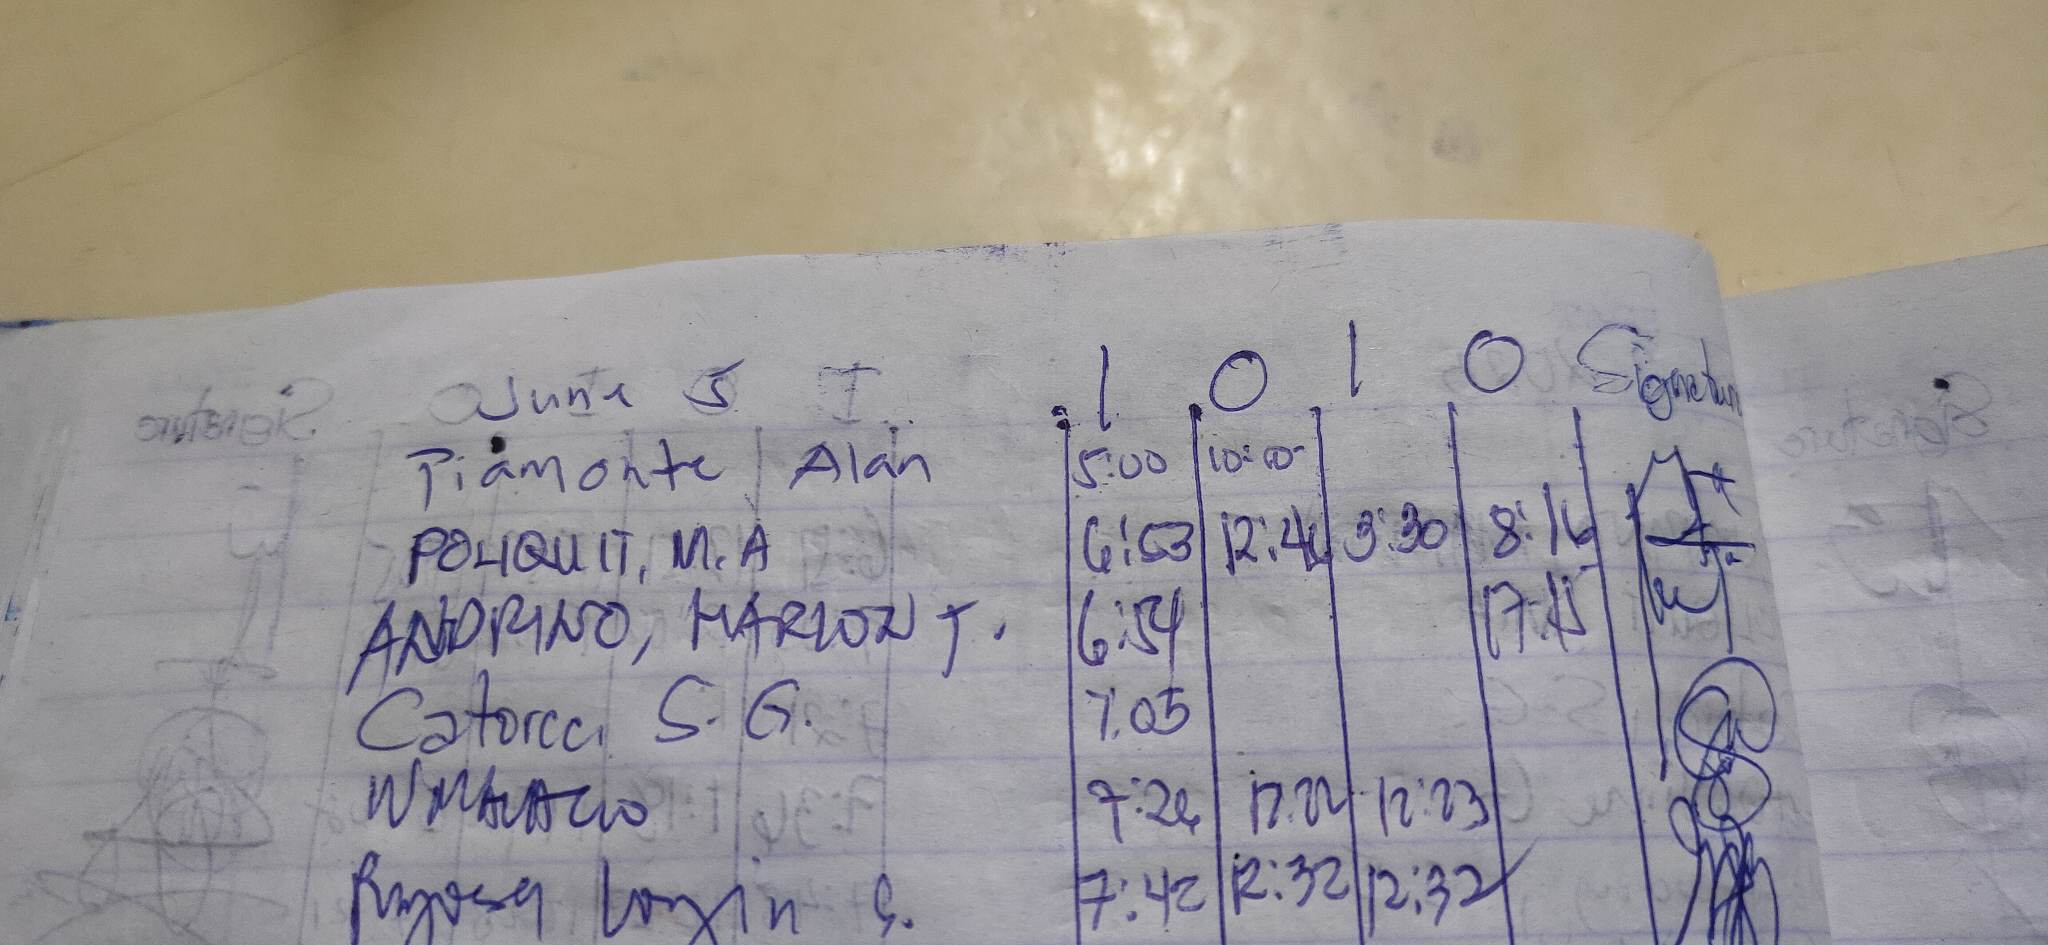 June 5 I O I O Signature
Piamonte Alan 5:00 10:10
POLIQUIT, M.A 6:53 12:46 3:30 8:16
ANDRINO, MARLON T. 6:54 17:15
Catorce, S. G. 7:05
7:26 12:22 12:23
Login S. 7:42 12:32 12:32